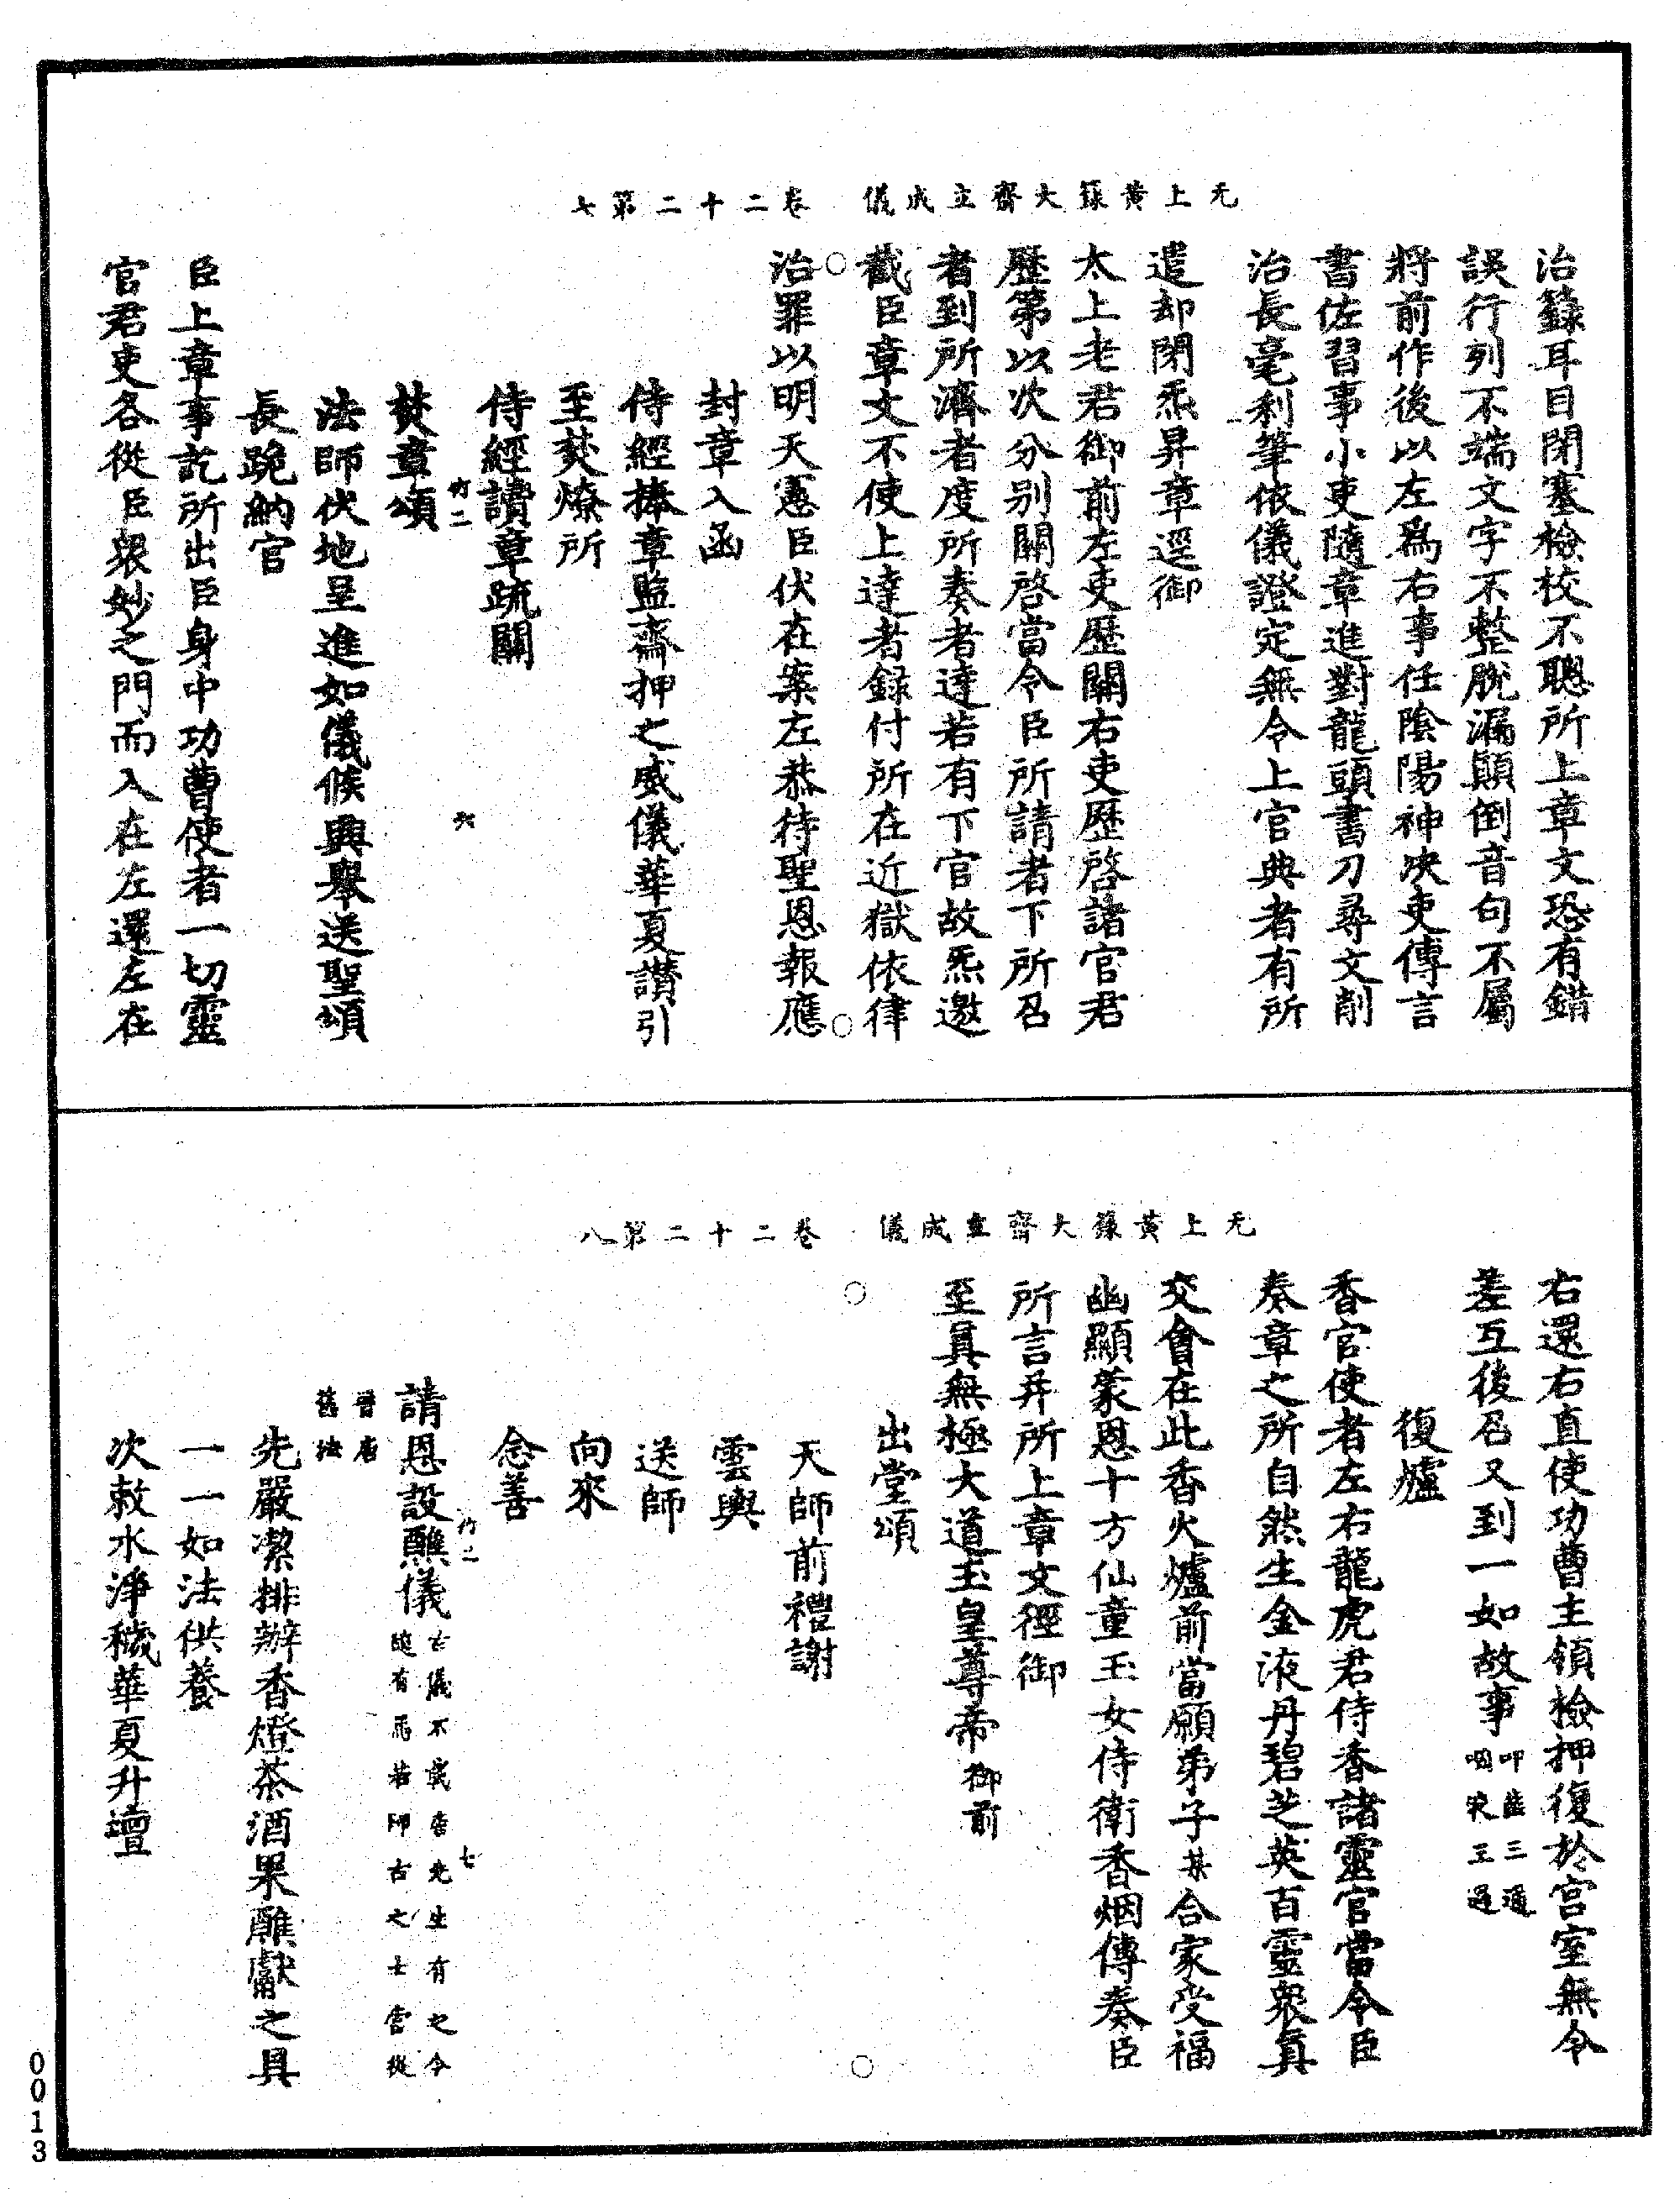 无上黃籙大齋立成儀 卷二十二第七
治籙耳目閉塞檢校不聰所上章文恐有錯
誤行列不端文字不整脫漏顛倒音句不屬
將前作後以左爲右事任陰陽神决吏傳言
書佐習事小吏隨章進對龍頭書刀尋文削
治長毫利筆依儀證定無令上官典者有所
遣却閉炁昇章逕御
太上老君御前左吏歷關右吏歷啓諸官君
歷第以次分别關啓當令臣所請者下所召
者到所濟者度所奏者達若有下官故炁邀
截臣章文不使上達者録付所在近獄依律
治罪以明天憲臣伏在案左恭待聖恩報應
封章入函
侍經捧章監齋押之威儀華夏讃引
至焚燎所
侍經讀章疏關
竹二 六
焚章頌
法師伏地呈進如儀候興舉送聖頌
長跪納官
臣上章事訖所出臣身中功曹使者一切靈
官君吏各從臣衆妙之門而入在左還左在
无上黃籙大齋立成儀 卷二十二第八
右還右直使功曹主領檢押復於宫室無令
差互後召又到一如故事 叩齒三通 咽液三過
復爐
香官使者左右龍虎君侍香諸靈官當令臣
奏章之所自然生金液丹碧芝英百靈衆真
交會在此香火爐前當願弟子某合家受福
幽顯蒙恩十方仙童玉女侍衛香烟傳奏臣
所言并所上章文徑御
至真無極大道玉皇尊帝 御前
出堂頌
天師前禮謝
雲輿
送師
向來
念善
竹二 七
請恩設醮儀 古儀不載杏先生有之今 隨有焉若師古之士當從
晉唐
舊法
先嚴潔排辦香燈茶酒果醮獻之具
一一如法供養
次敕水淨穢華夏升壇
0013